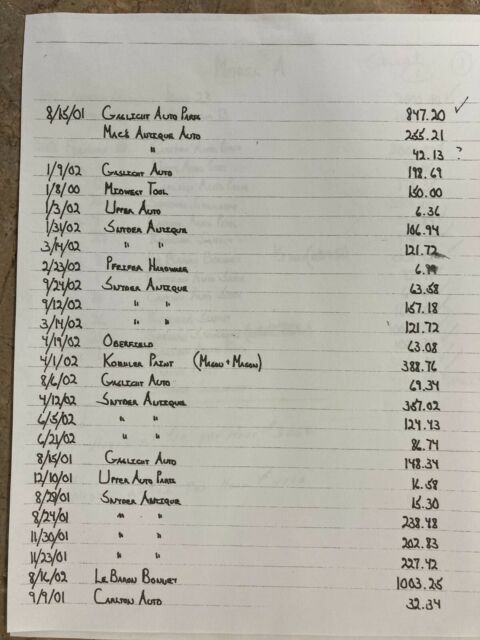 8/15/01 Gaslight Auto Parts 847.20 ✓
Macs Antique Auto 255.21
" 42.13 ?
1/9/02 Gaslight Auto 198.69
1/8/00 Midwest Tool 150.00
1/3/02 Upper Auto 6.36
1/31/02 Snyder Antique 106.94
3/14/02 " " 121.72
2/23/02 Pfeifer Hardware
9/24/02 Snyder Antique 63.58
9/12/02 " " 157.18
3/14/02 " " 121.72
4/19/02 Oberfield 63.08
4/1/02 Kohuler Paint (Mason + Mason) 388.76
8/6/02 Gaslight Auto 69.34
4/12/02 Snyder Antique 357.02
6/5/02 " " 124.43
6/21/02 " " 86.74
8/15/01 Gaslight Auto 148.34
12/10/01 Upper Auto Parts 16.58
8/29/01 Snyder Antique 15.30
8/24/01 " " 238.48
11/30/01 " " 202.83
11/23/01 " " 227.42
8/16/02 LeBaron Bonney 1003.25
9/9/01 Carlton Auto 32.34